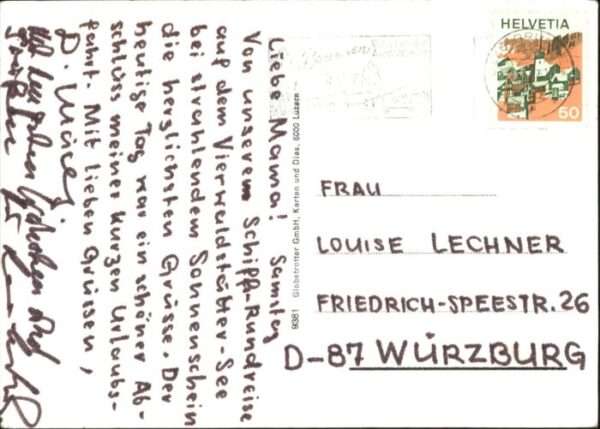 Liebe Mama! Samstag
Von unserem Schiffs-Rundreise
auf dem Vierwaldstätter-See
bei strahlendem Sonnenschein
die herzlichsten Grüsse. Der
heutige Tag war ein schöner Ab-
schluss meiner kurzen Urlaubs-
fahrt. Mit lieben Grüssen,
D.
9361 Globetrotter GmbH, Karten und Dias, 6000 Luzern
HELVETIA
50
FRAU
LOUISE LECHNER
FRIEDRICH-SPEESTR. 26
D-87 WÜRZBURG